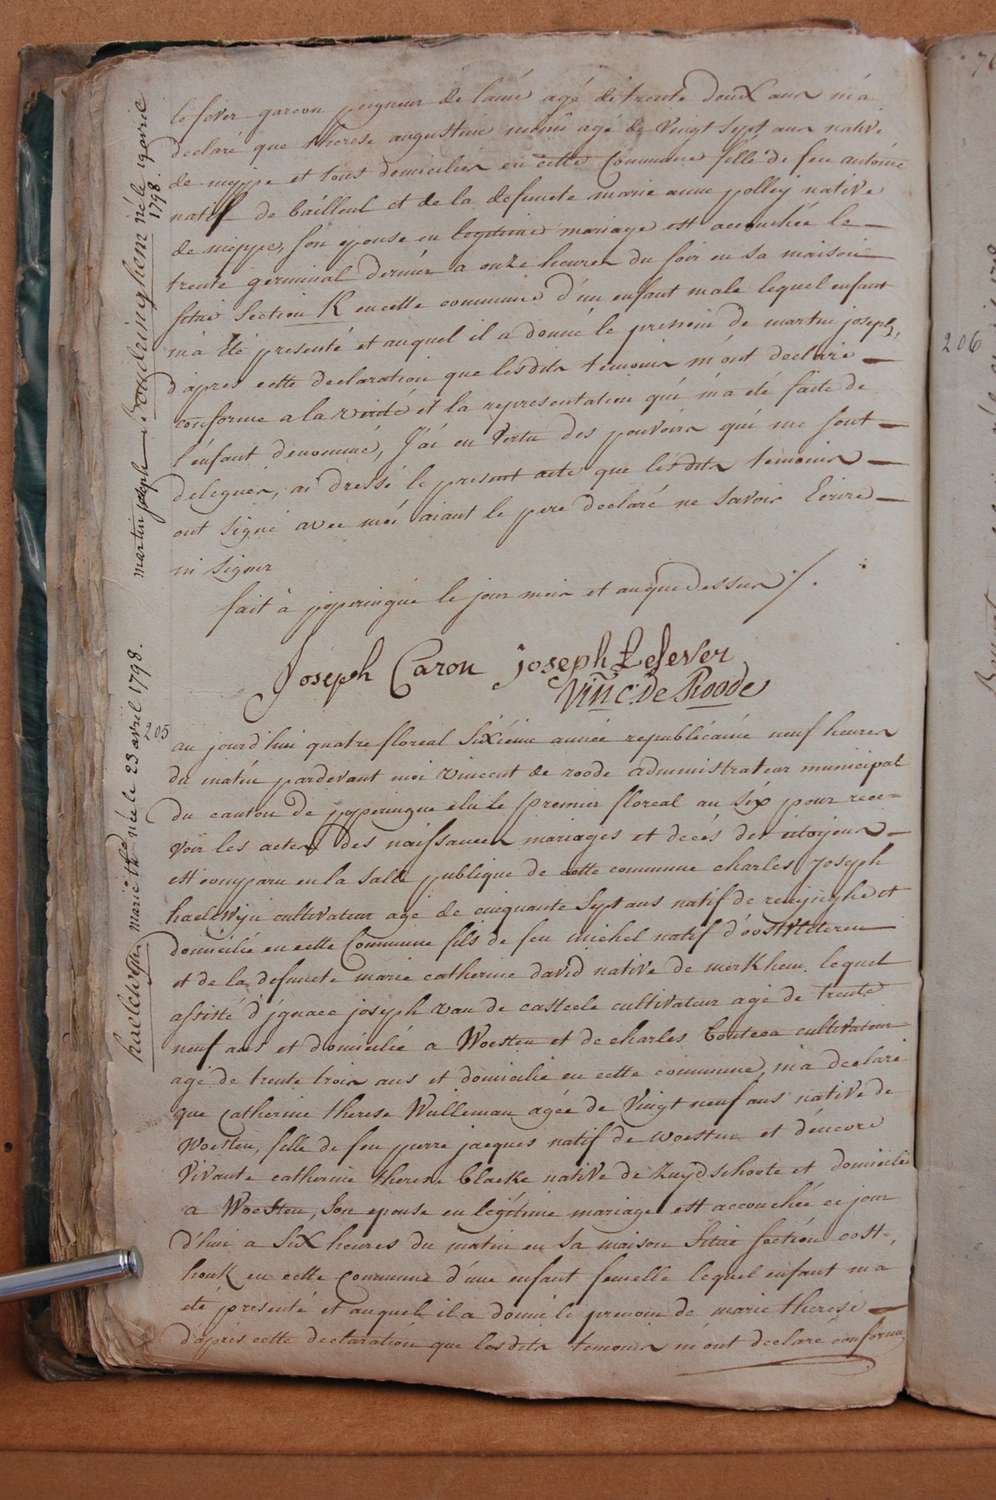 lefever garcon peigneur de laine agé de trente deux ans m'a
declaré que therese augustine meine agé de vingt sept ans native
de nieppe et tous domiciliés en cette Commune fille de feu antoine
natif de bailleul et de la defuncte marie anne polley native
de nieppe, son epouse en legitime mariage est accouchée le
trente germinal dernier a onze heures du soir en sa maison
sitüé Section K en cette commune d'un enfant male lequel enfant
m'a été presenté et auquel il a donné le prenom de martin joseph,
d'apres cette declaration que lesdits temoins m'ont declaré
conforme a la verité et la representation qui m'a été faite de
l'enfant denommé, J'ai en vertu des pouvoirs qui me sont
delegués, ai dressé le present acte que lesdits temoins
ont signé avec moi aiant le pere declaré ne savoir Ecrire
ni signer
fait à poperingue le jour mois et an que dessus /.
Joseph Caron Joseph Lefever
Vinc: De Roode
205
au jourd'hui quatre floreal sixiéme année republicaine neuf heures
du matin pardevant moi vincent de roode administrateur municipal
du canton de poperingue elu le premier floreal an six pour rece=
voir les actes des naissances mariages et decés des citoijens
est comparu en la salle publique de cette commune charles Joseph
haelewijn cultivateur agé de cinquante sept ans natif de reninghe et
domicilié en cette Commune fils de feu michel natif d'oostvleteren
et de la defuncte marie catherine david native de merkhem, lequel
assisté d'ignace joseph van de casteele cultivateur agé de trente
neuf ans et domicilié a Woesten et de charles cultivateur
agé de trente trois ans et domicilié en cette commune, m'a declaré
que catherine therese Wulleman agée de vingt neuf ans native de
Woesten, fille de feu pierre jacques natif de woesten et d'encore
vivante catherine therese Claeke native de Zuydschoote et domiciliée
a Woesten, son epouse en légitime mariage est accouchée ce jour
d'hui a six heures du matin en sa maison sitüé section oost-
houk en cette commune d'une enfant femelle lequel enfant m'a
été presenté et auquel il a donné le prenom de marie therese
d'après cette declaration que lesdits temoins m'ont declaré conforme
martin joseph né le 19 avril
1798.
marie the née le 23 avril 1798.
206